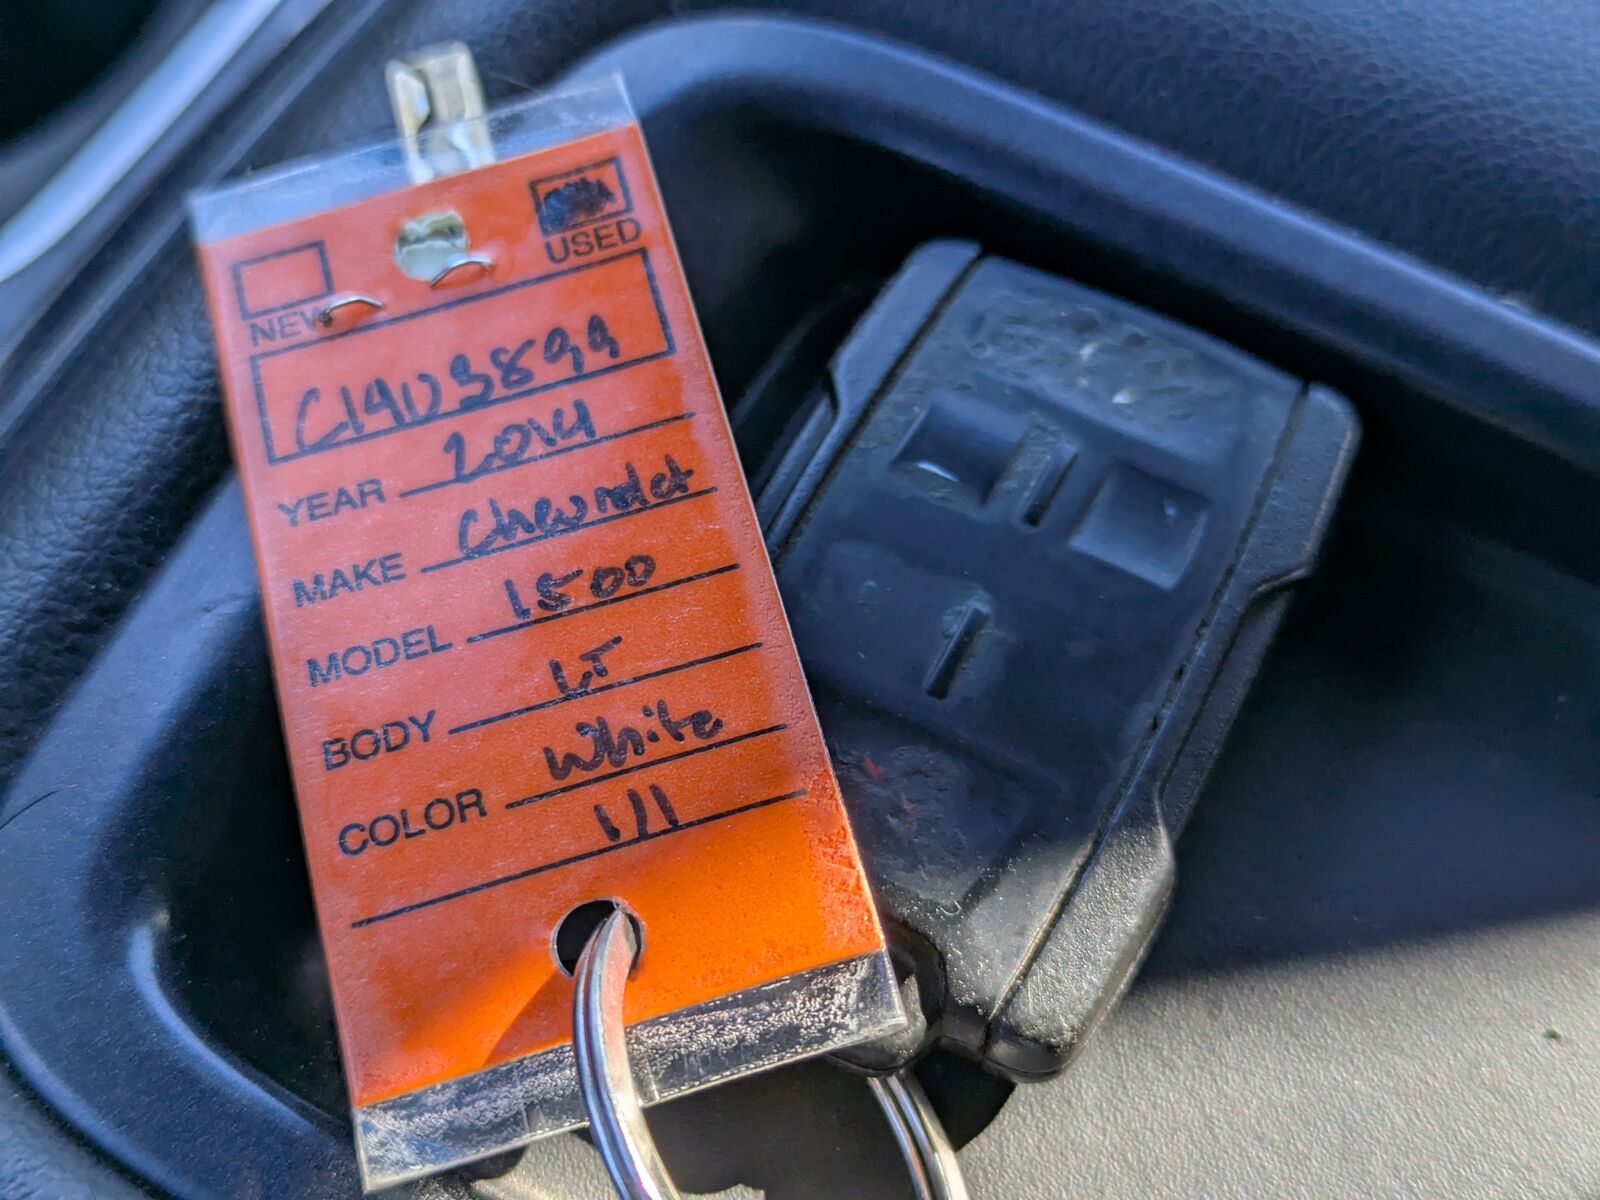 NEW
USED
C14U3899
YEAR 2014
MAKE Chevrolet
MODEL 1500
BODY LT
COLOR White
1/1